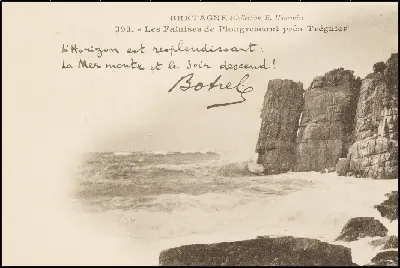 BRETAGNE (Collection E. Hamonic)
393. - Les Falaises de Plougrescant près Tréguier
L'Horizon est resplendissant:
La Mer monte et le Soir descend!
Botrel